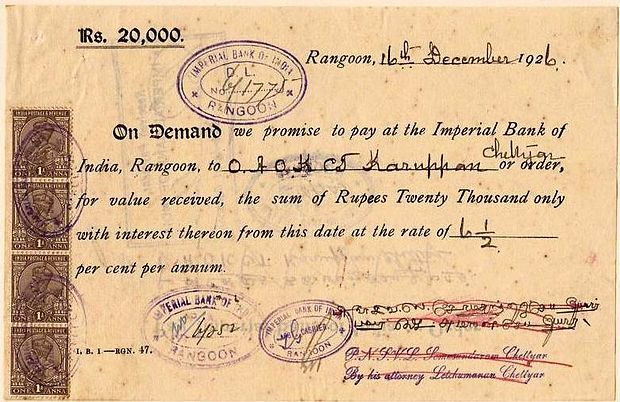 Rs. 20,000.
Rangoon, 16th December 1926.
IMPERIAL BANK OF INDIA
D. L.
No.
RANGOON
On Demand we promise to pay at the Imperial Bank of
India, Rangoon, to O A O K CT Karuppan Chettyar or order,
for value received, the sum of Rupees Twenty Thousand only
with interest thereon from this date at the rate of 6 1/2
per cent per annum.
INDIA POSTAGE & REVENUE
1A
ONE ANNA
INDIA POSTAGE & REVENUE
1A
ONE ANNA
INDIA POSTAGE & REVENUE
1A
ONE ANNA
INDIA POSTAGE & REVENUE
1A
ONE ANNA
IMPERIAL BANK OF
RANGOON
IMPERIAL BANK OF INDIA
CASHIER
RANGOON
P.N.S.V.L. Somasundaram Chettyar
By his attorney Letchumanan Chettyar
I. B. 1—RGN. 47.